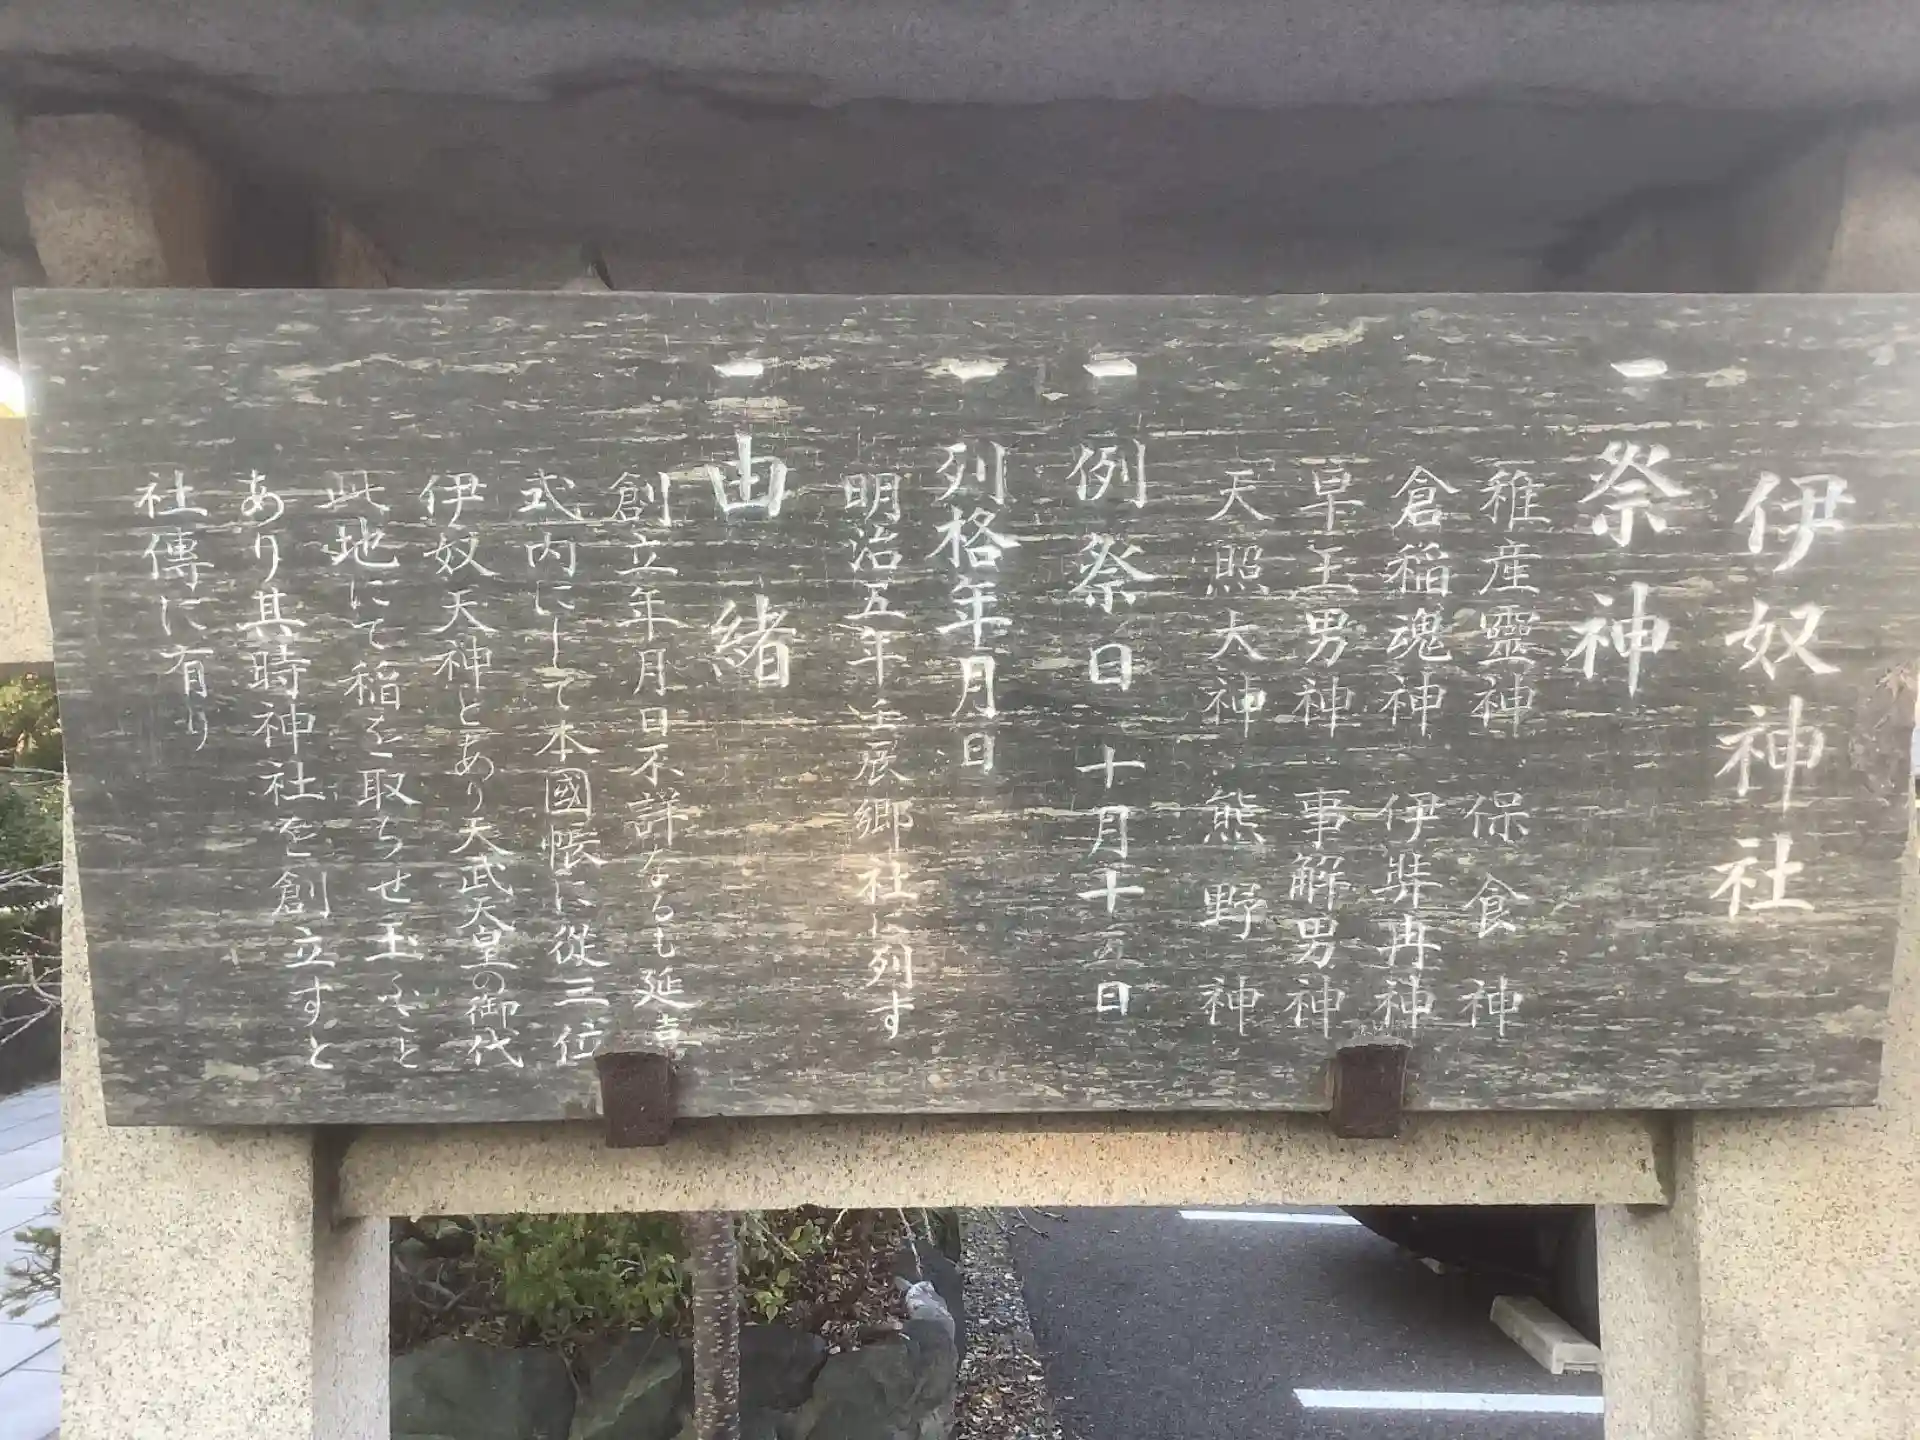 伊奴神社
一 祭神
稚産靈神 保食神
倉稲魂神 伊弉冉神
早玉男神 事解男神
天照大神 熊野神
一 例祭日 十月十五日
一 列格年月日
明治五年壬辰郷社に列す
一 由緒
創立年月日不詳なるも延喜
式内にして本國帳に従三位
伊奴天神とあり天武天皇の御代
此地にて稲を取らせ玉ふこと
あり其時神社を創立すと
社傳に有り